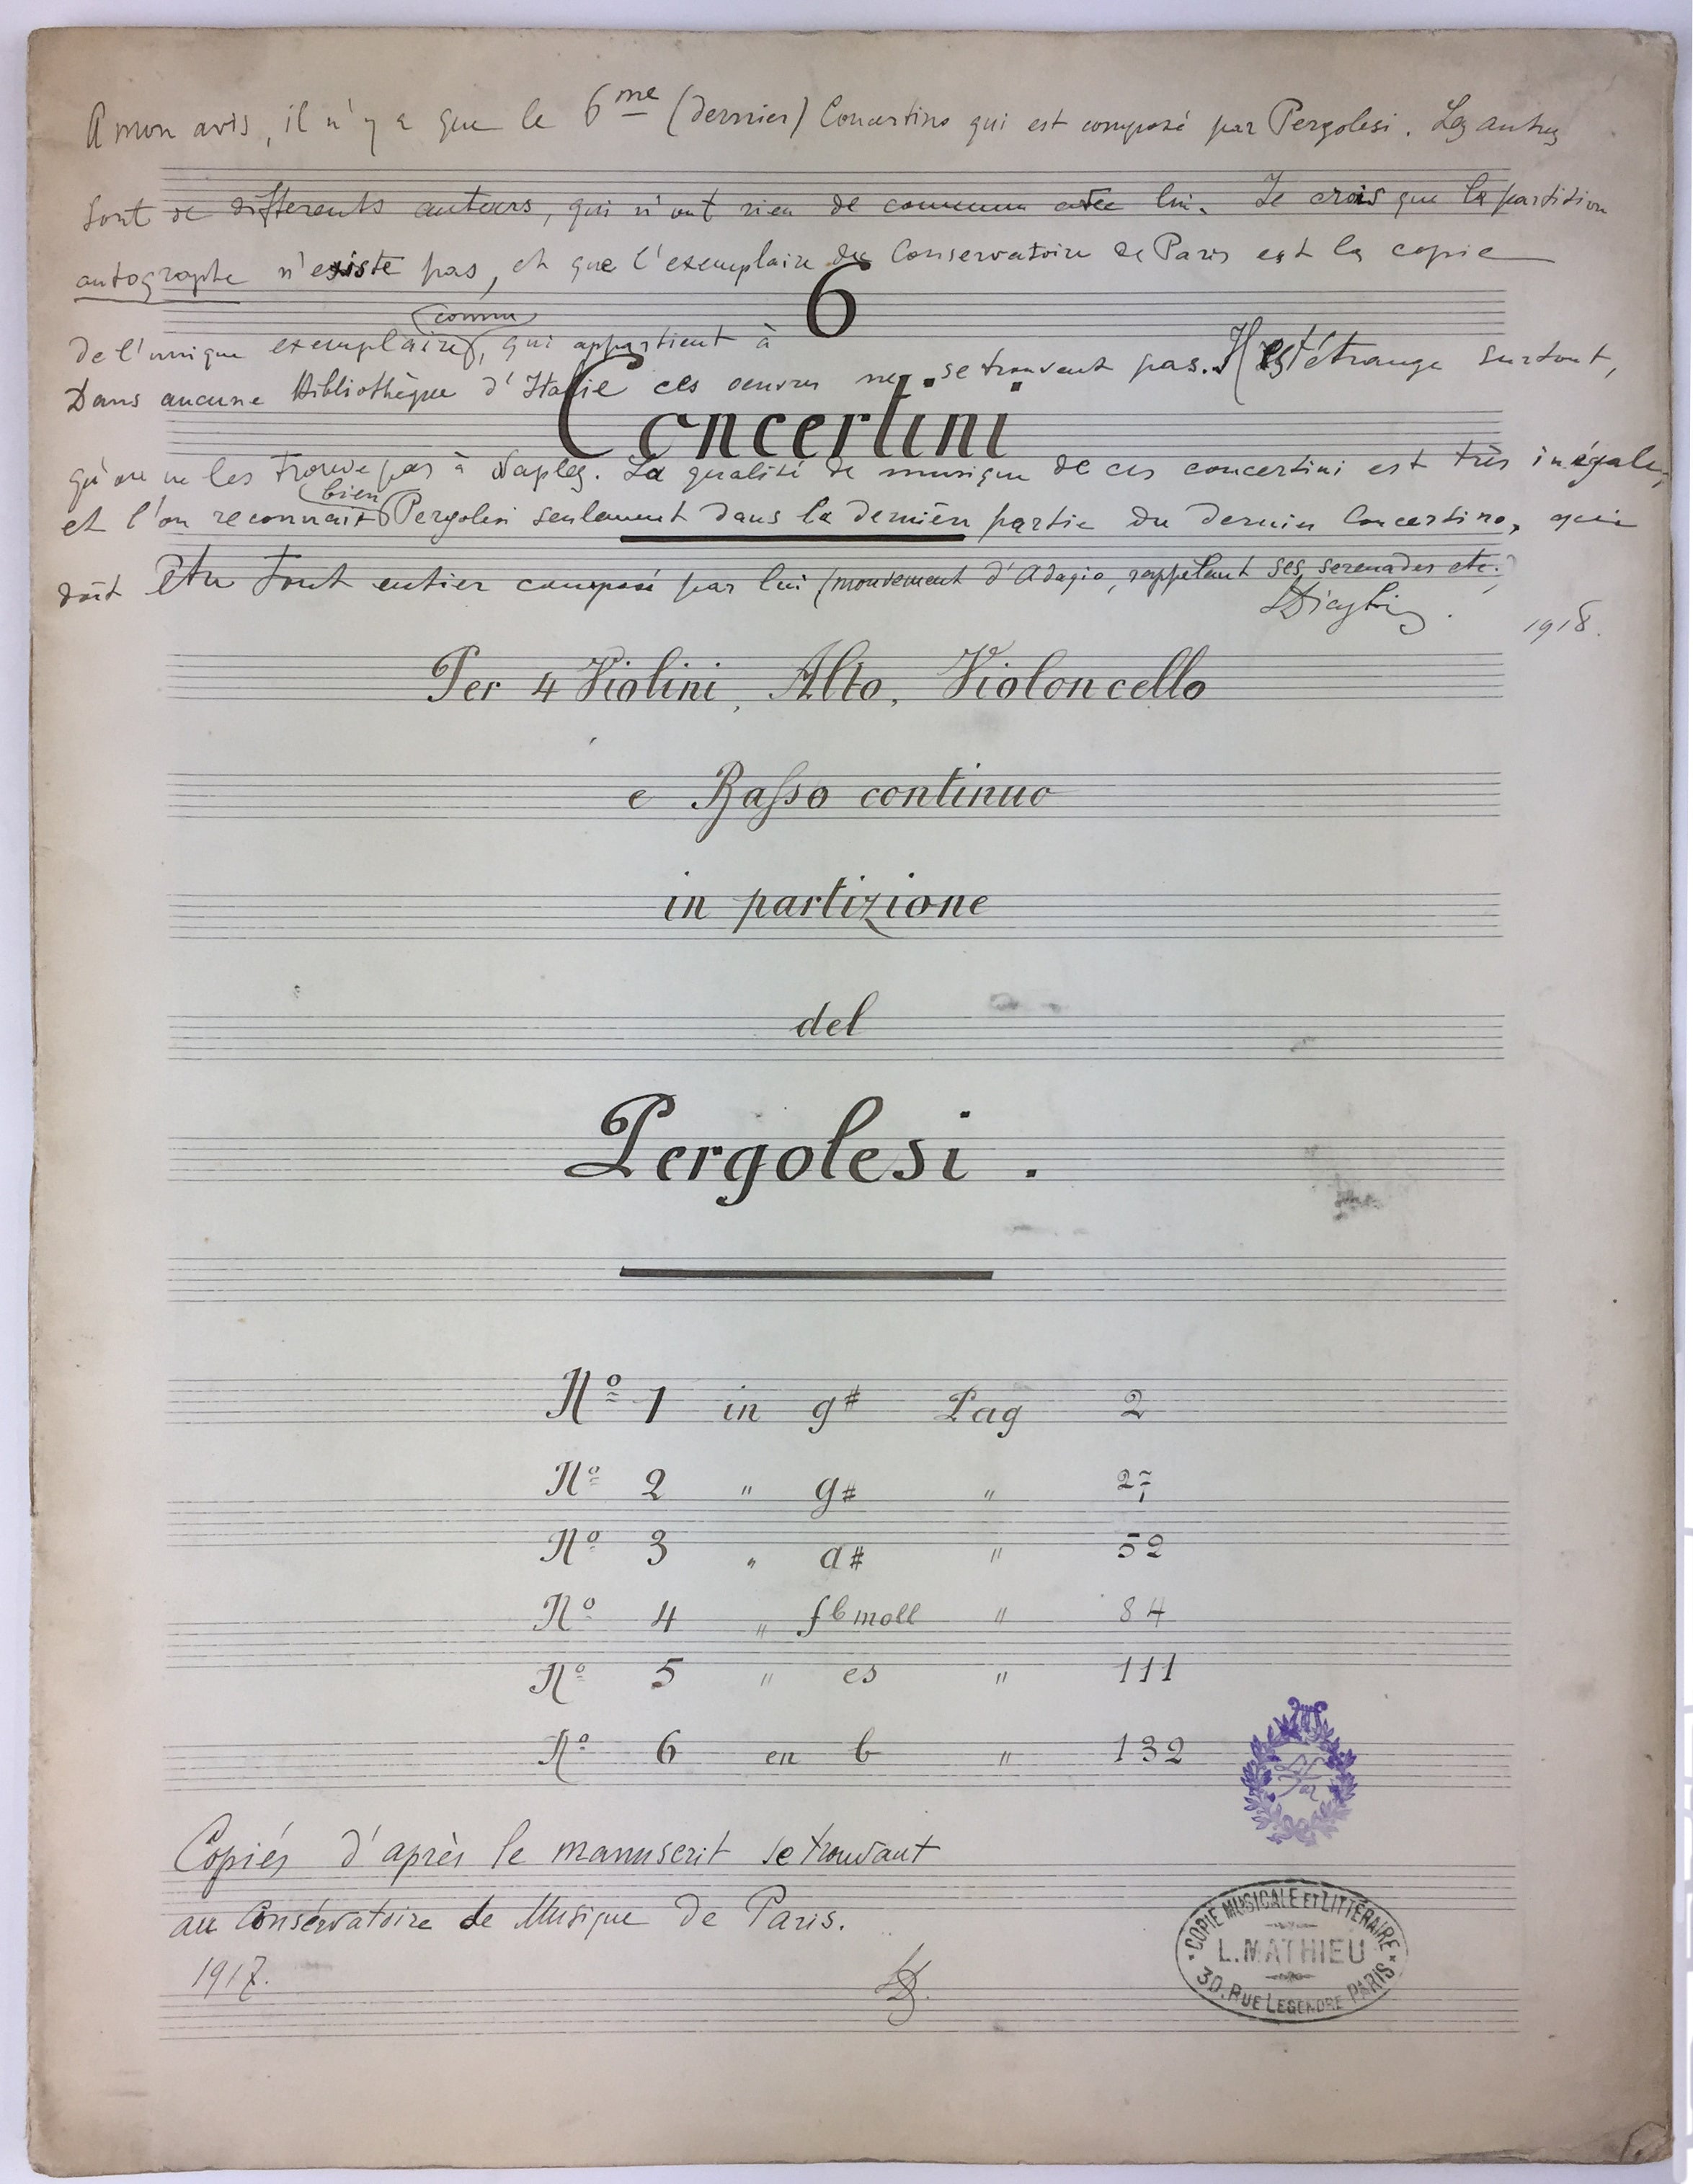 A mon avis, il n'y a que le 6me (dernier) Concertino qui est composé par Pergolesi. Les autres
sont de differents auteurs, qui n'ont rien de commun avec lui. Je crois que la partition
autographe n'existe pas, et que l'exemplaire du Conservatoire de Paris est la copie
de l'unique exemplaire (connu), qui appartient à
Dans aucune Bibliothèque d'Italie ces oeuvres ne se trouvent pas. Il est étrange surtout,
qu'on ne les trouve pas à Naples. La qualité de musique de ces concertini est très inégale,
et l'on reconnait (bien) Pergolesi seulement dans la dernièr partie du dernier Concertino, qui
doit être tout entier composé par lui (mouvement d'Adagio, rappelant ses serenades etc.)
1918.
6
Concertini
Per 4 Violini, Alto, Violoncello
e Basso continuo
in partizione
del
Pergolesi.
No 1 in g# Pag 2
No 2 " g# " 27
No 3 " a# " 52
No 4 " f b moll " 84
No 5 " es " 111
No 6 en b " 132
Copiés d'après le manuscrit se trouvant
au Conservatoire de Musique de Paris.
1917.
COPIE MUSICALE ET LITTÉRAIRE
L. MATHIEU
30, RUE LEGENDRE PARIS